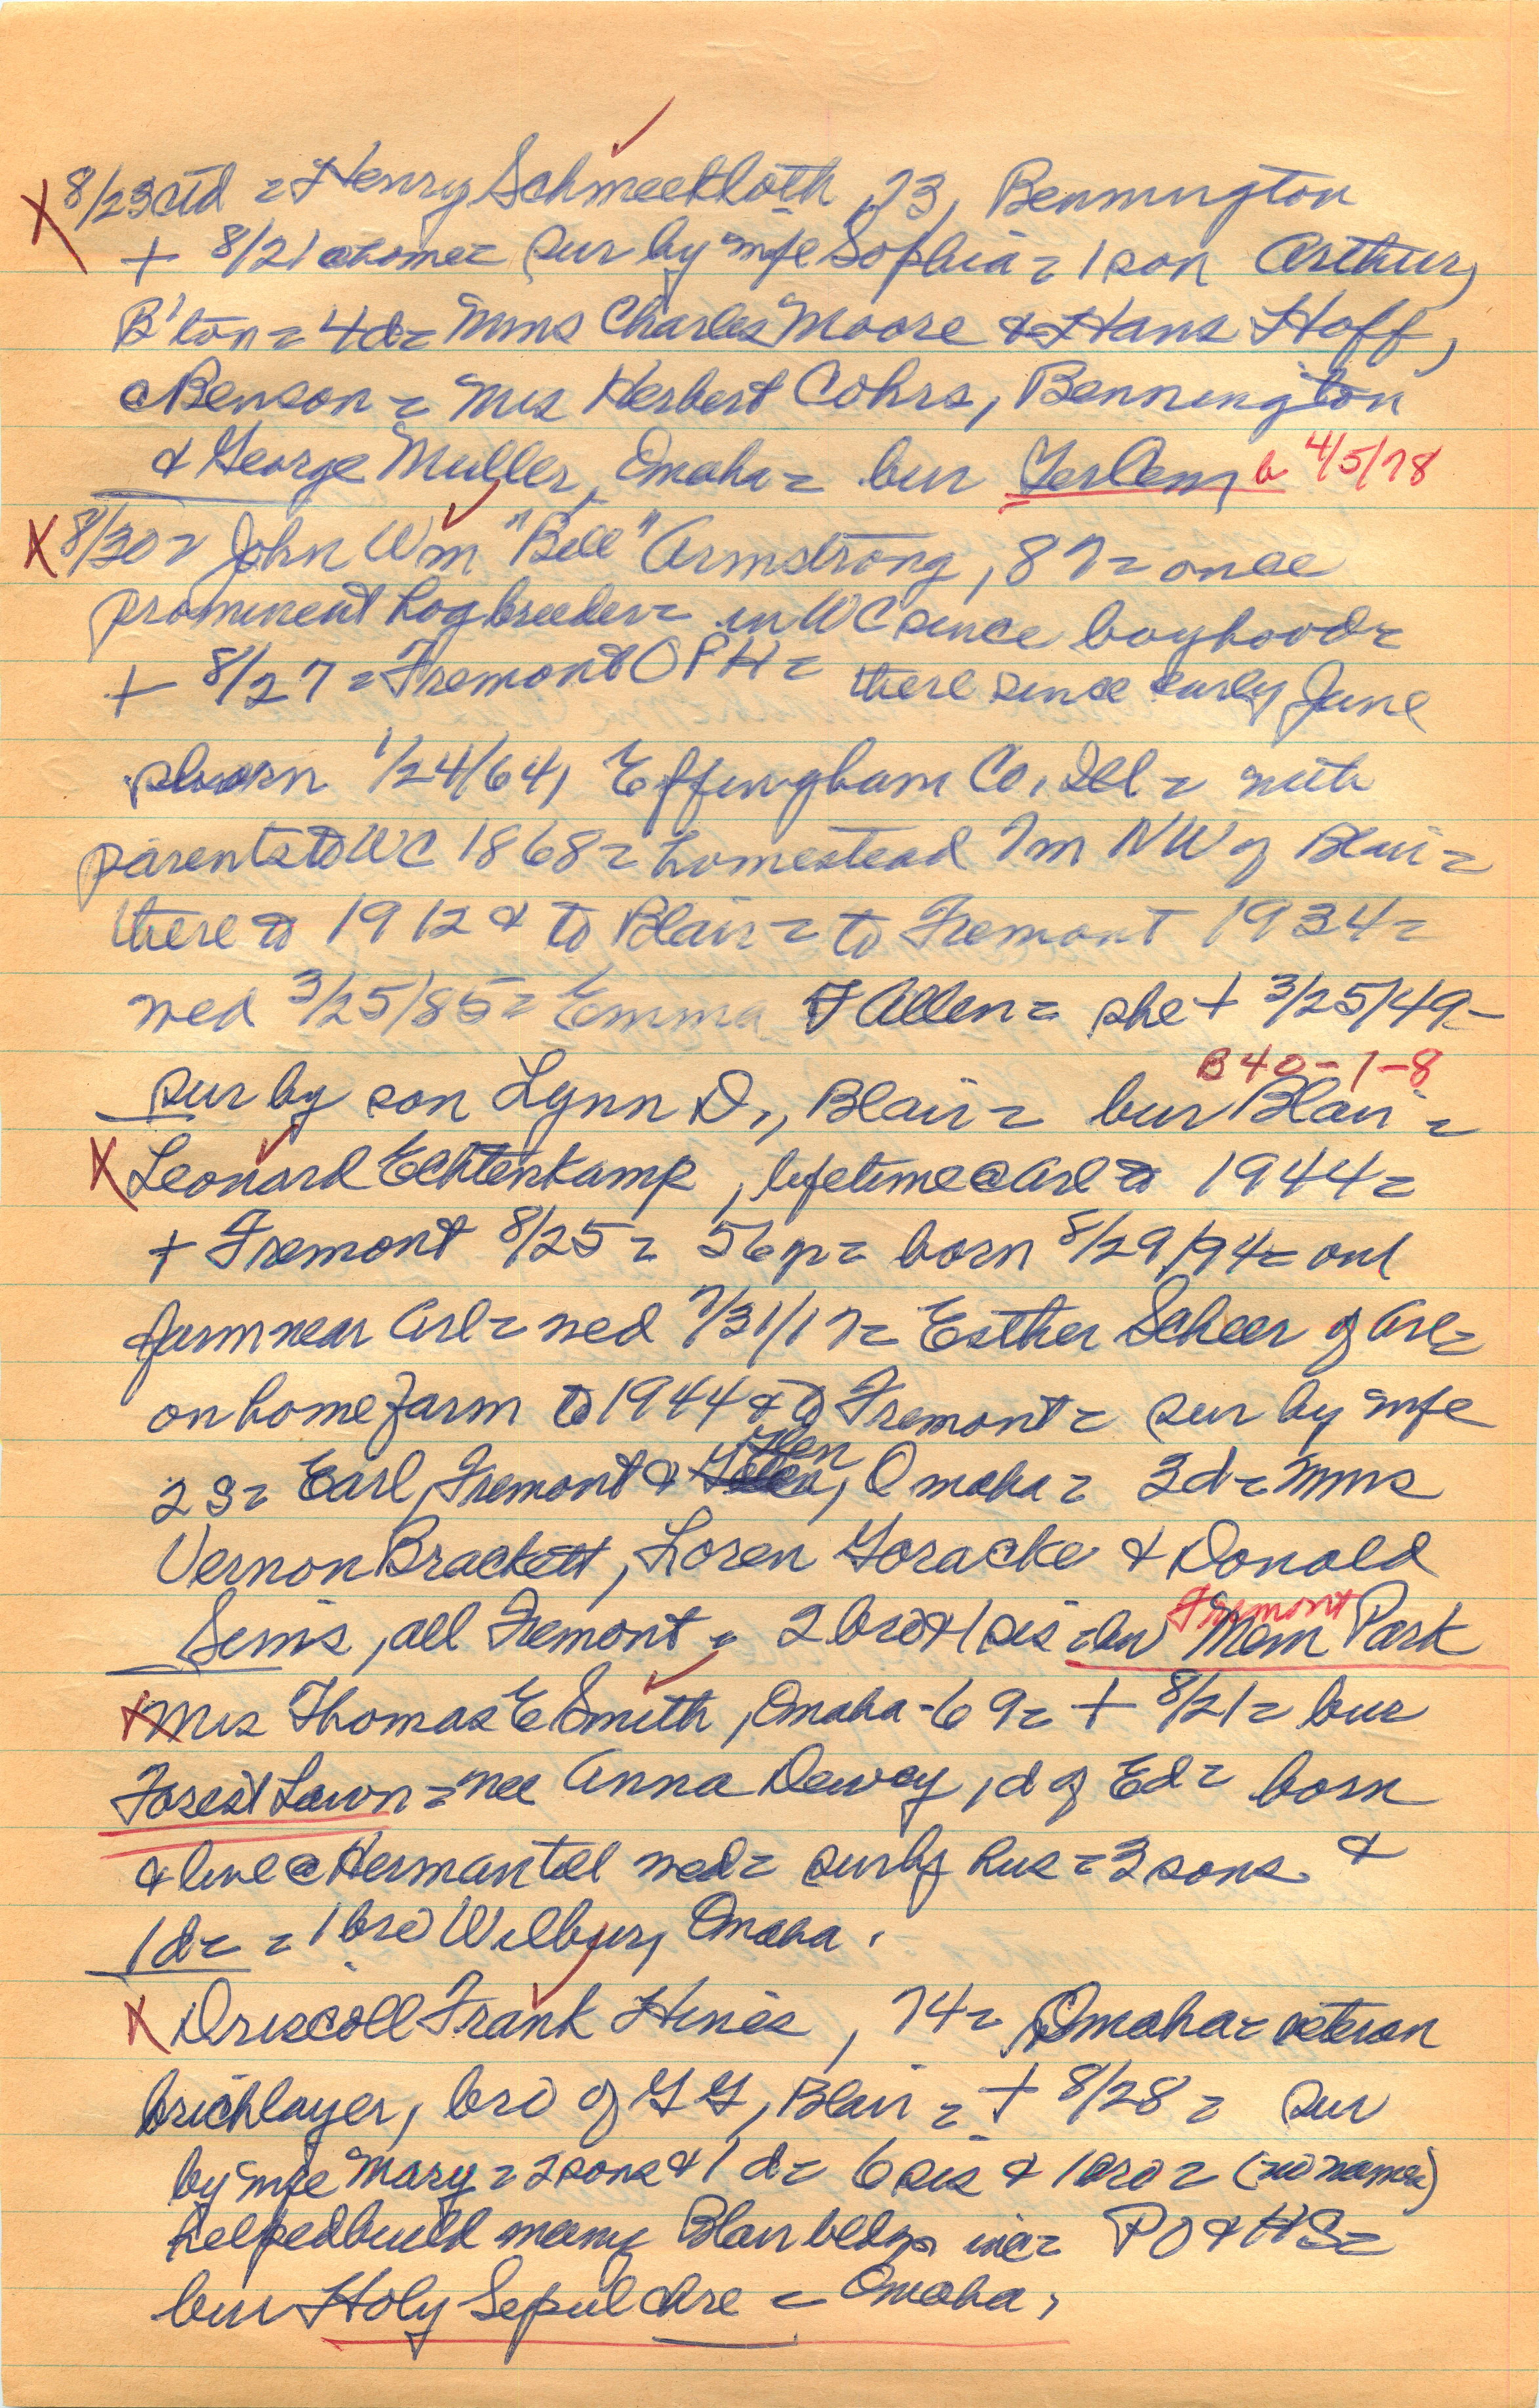 8/23 ctd = Henry Schmeekloth, 73, Bennington
+ 8/21 @ home = sur by wife Sophia = 1 son Arthur,
B'ton = 4d = Mms Charles Moore & Hans Hoff,
@ Benson = Mrs Herbert Cohrs, Bennington
& George Muller, Omaha = bur Ger Cem b 4/5/78
8/30 = John Wm "Bill" Armstrong, 87 = once
prominent hog breeder = in WC since boyhood =
+ 8/27 = Fremont OPH = there since early June
born 1/24/64, Effingham Co, Ill = with
parents to WC 1868 = homestead 7m NW of Blair =
there to 1912 & to Blair = to Fremont 1934 =
wed 3/25/85 = Emma F Allen = she + 3/25/49 -
B40-1-8
sur by son Lynn D., Blair = bur Blair =
Leonard Echtenkamp, lifetime @ Arl to 1944 =
+ Fremont 8/25 = 56y = born 8/29/94 = on
farm near Arl = wed 7/31/17 = Esther Scheer of Arl =
on home farm to 1944 & to Fremont = sur by wife
2s = Earl, Fremont & Glen, Omaha = 3d = Mms
Vernon Brackett, Loren Goracke & Donald
Sims, all Fremont = 2 bro & 1 sis = bur Fremont Mem Park
Mrs Thomas E Smith, Omaha - 69 = + 8/21 = bur
Forest Lawn = nee Anna Dewey, d of Ed = born
& live @ Herman til wed = sur by hus = 3 sons &
1d = = 1 bro Wilbur, Omaha.
Driscoll Frank Hines, 74 = Omaha = veteran
bricklayer, bro of GG, Blair = + 8/28 = sur
by wife Mary = 2 sons & 1 d = 6 sis & 1 bro = (no names)
helped build many Blair bldgs inc = PO & HS =
bur Holy Sepulchre = Omaha.